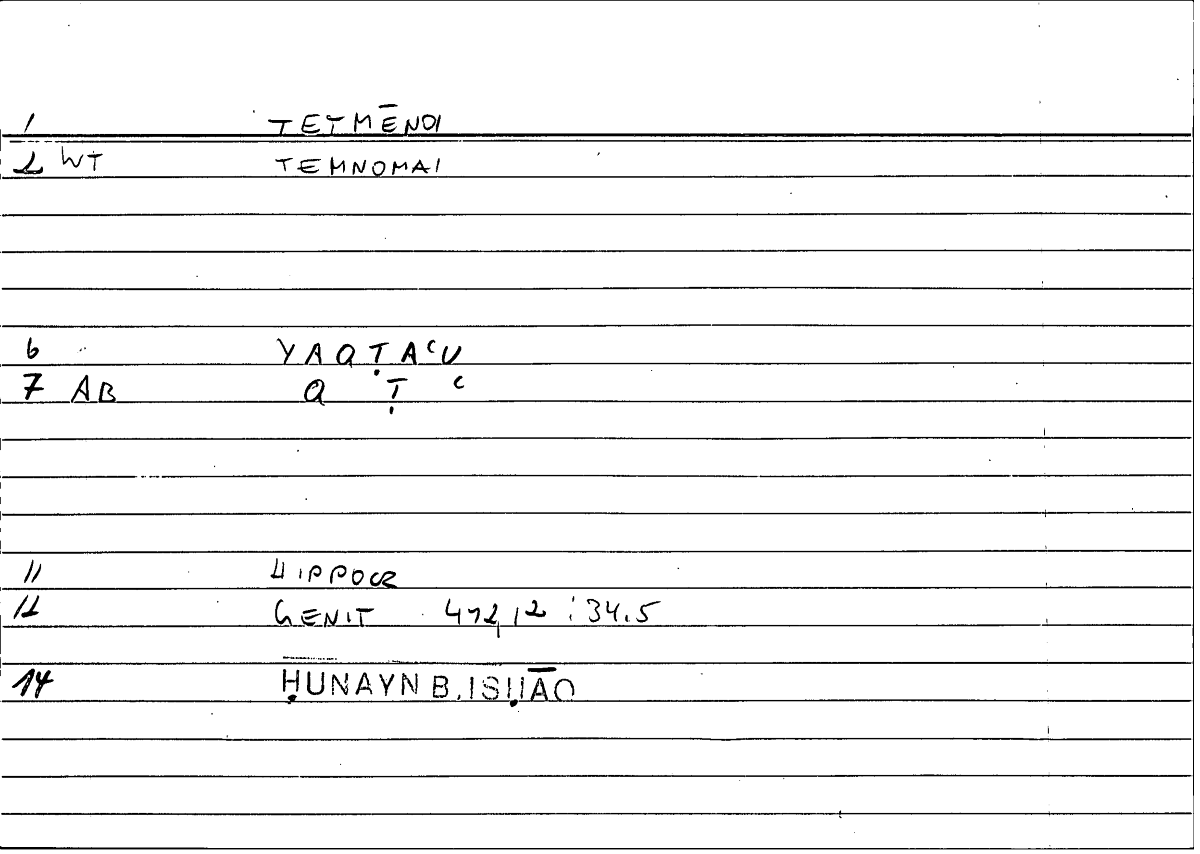 1 TETMĒNOI
2 WT TEMNOMAI
6 YAQṬAʿU
7 AB Q Ṭ ʿ
11 HIPPOCR
12 GENIT 472,12 : 34.5
14 ḤUNAYN B. ISḤĀQ